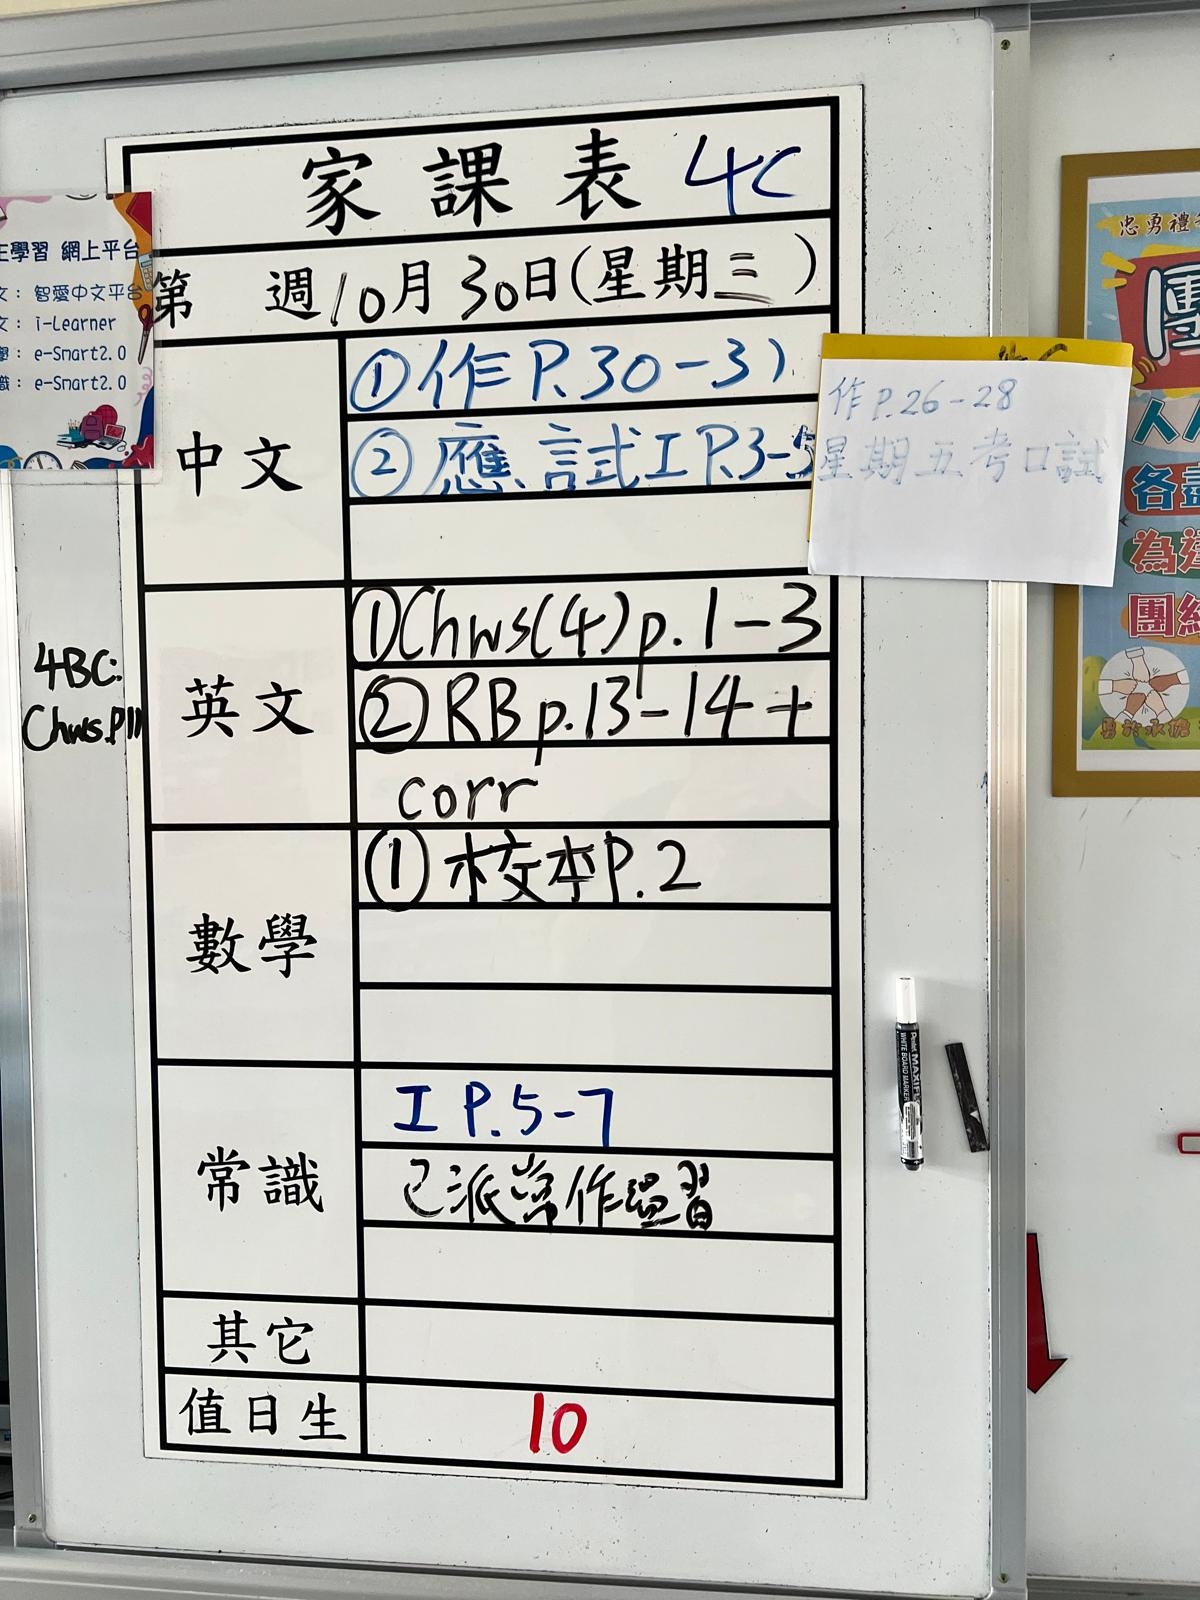 家課表 4C
第 週 10月30日(星期三)
中文
①作P.30-31
②應試工P.3-5
英文
①Chws(4)p.1-3
②RB p.13-14 +
corr
數學
①校本P.2
常識
工 P.5-7
已派常作溫習
其它
值日生
10
作P.26-28
星期五考口試
4BC:
Chws.P11
學習 網上平台
文：智愛中文平台
文：i-Learner
學：e-Smart2.0
識：e-Smart2.0
忠勇禮
團
人人
各盡
為
團結
勇於承擔
Pentel MAXIFLO
WHITE BOARD MARKER